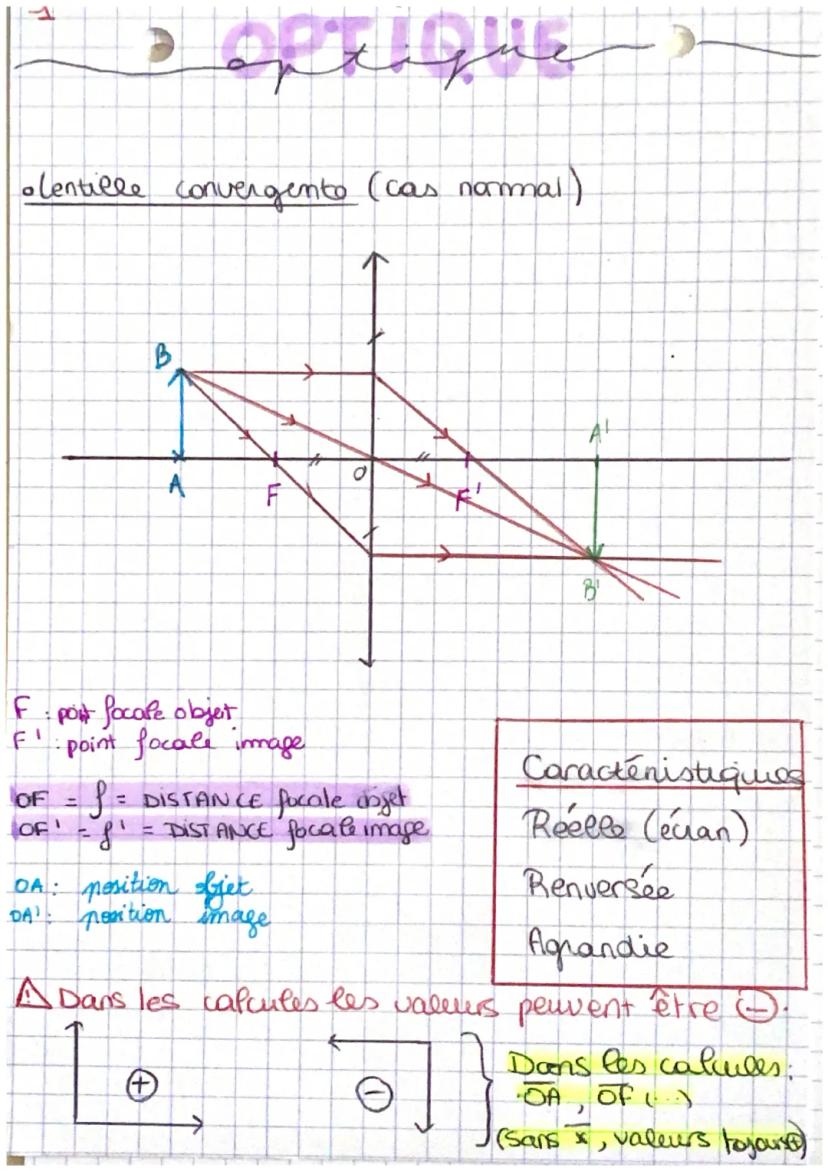 1
OPTIQUE
optique
• Lentille convergente (cas normal)
B
A'
A
F
O
F'
B'
F : point focale objet
F' : point focale image
OF = f = DISTANCE focale objet
OF' = f' = DISTANCE focale image
OA : position objet
OA' : position image
Caractéristiques
Réelle (écran)
Renversée
Agrandie
⚠ Dans les calcules les valeurs peuvent être ⊖.
⊕
⊖
Dans les calcules :
O̅A̅, O̅F̅ (...)
(sans x̅, valeurs toujours ⊕)